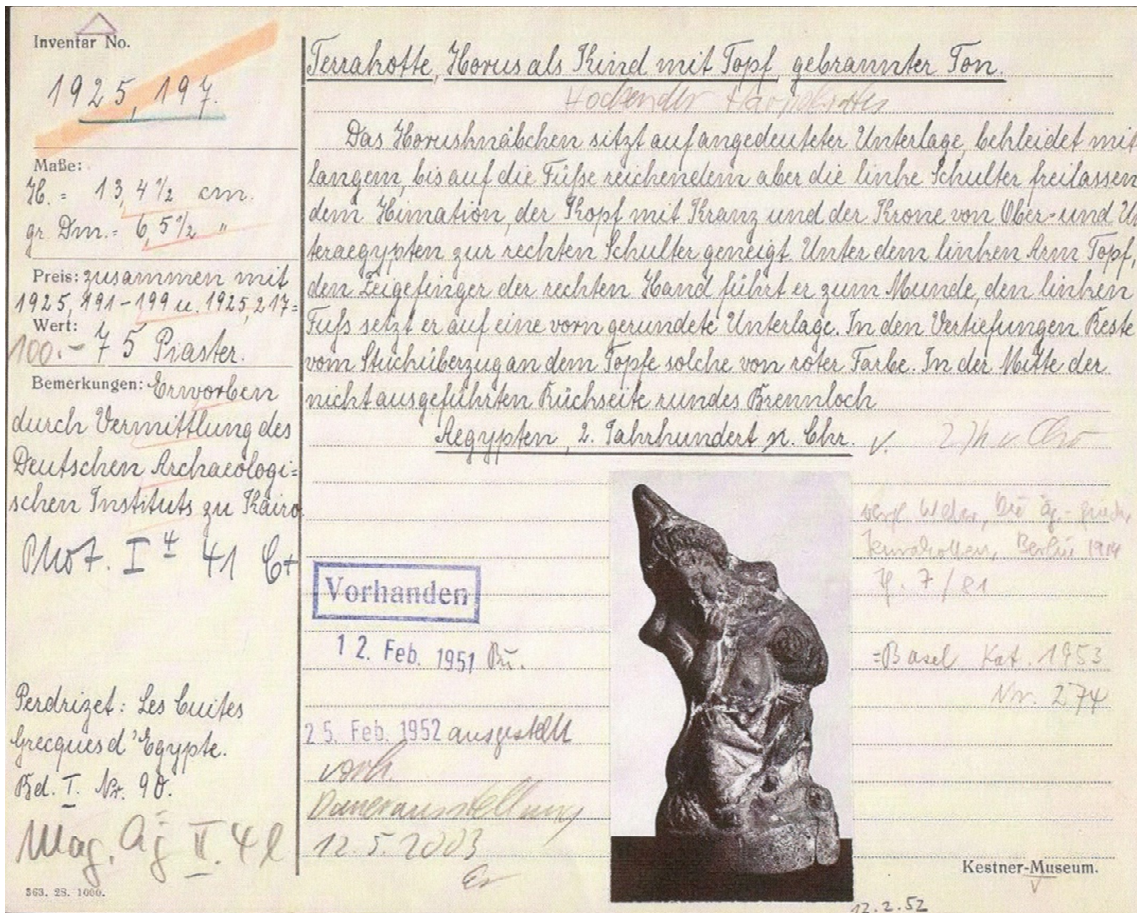 Inventar No.
1925, 197.
Maße:
H. = 13,4 1/2 cm.
gr. Dm. = 6,5 1/2 "
Preis: zusammen mit
1925, 191-199 u. 1925, 217=
Wert:
100.- 75 Piaster.
Bemerkungen: Erworben
durch Vermittlung des
Deutschen Archaeologi=
schen Instituts zu Kairo
Phot. I 4 41
Perdrizet: Les Cuites
Grecques d'Egypte.
Bd. I. Nr. 90.
Mag. Äg II. 4l
563. 28. 1000.
Terrakotte, Horus als Kind mit Topf gebrannter Ton.
Hockender Harpokrates
Das Horusknäbchen sitzt auf angedeuteter Unterlage, bekleidet mit
langem, bis auf die Füße reichendem aber die linke Schulter freilassen
dem Himation, der Kopf mit Kranz und der Krone von Ober- und Un
teraegypten zur rechten Schulter geneigt. Unter dem linken Arm Topf,
den Zeigefinger der rechten Hand führt er zum Munde, den linken
Fuß setzt er auf eine vorn gerundete Unterlage. In den Vertiefungen Reste
vom Stucküberzug an dem Topfe solche von roter Farbe. In der Mitte der
nicht ausgeführten Rückseite rundes Brennloch
Aegypten, 2. Jahrhundert n. Chr. v.
Vorhanden
12. Feb. 1951
25. Feb. 1952 ausgestellt
vorh.
Dauerausstellung
12.5.2003
vergl Weber, Die äg.-griech.
Terrakotten, Berlin 1914
7/81
=Basel Kat. 1953
Nr. 274
Kestner-Museum.
12.2.52